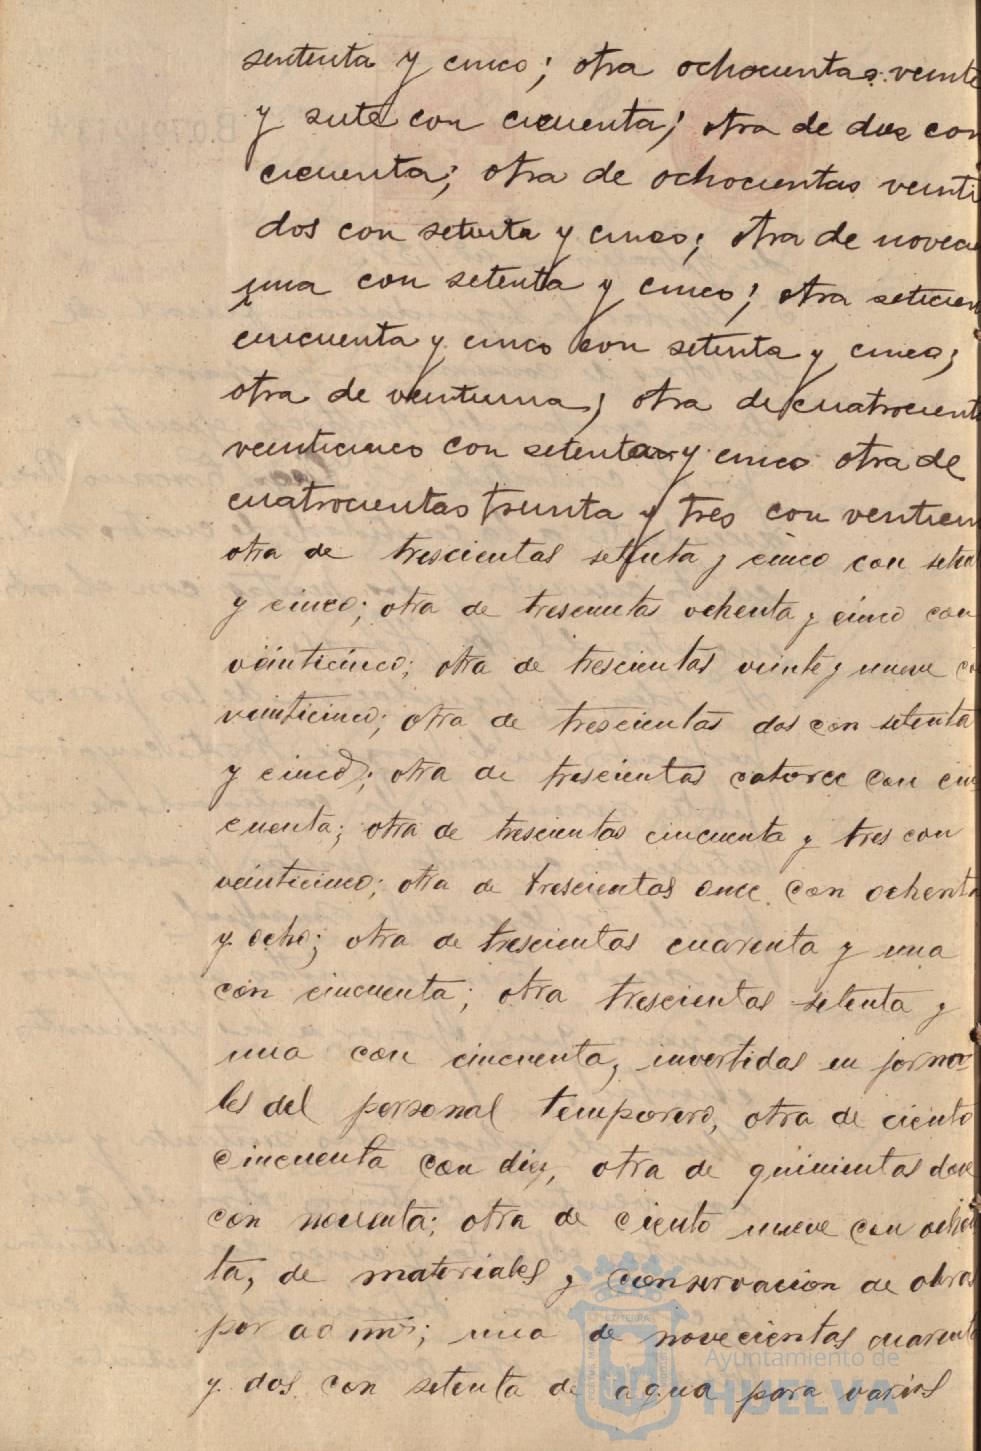 sententa y cinco; otra ochocientas veinte
y siete con cicuenta; otra de dos con
cicuenta; otra de ochocientas veinti
dos con setenta y cinco; otra de novecien
una con setenta y cinco; otra setecien
cincuenta y cinco con setenta y cinco;
otra de ventiuna; otra de cuatrocient
veinticinco con setenta y cinco otra de
cuatrocientas trienta y tres con venticin
otra de trescientas setenta y cinco con seten
y cinco; otra de trescientas ochenta y cinco con
veinticinco; otra de trescientas veinte y nueve co
veinticinco; otra de trescientas dos con setenta
y cinco; otra de trescientas catorce con cin
cuenta; otra de trescientas cincuenta y tres con
veinticinco; otra de trescientas once con ochenta
y ocho; otra de trescientas cuarenta y una
con cincuenta; otra trescientas setenta y
una con cincuenta, invertidas en jorna
les del personal temporero, otra de ciento
cincuenta con diez, otra de quinientas doce
con noventa; otra de ciento nueve con ochen
ta, de materiales y conservacion de obras
por adm.; una de novecientas cuarenta
y dos con setenta de agua para varios
Ayuntamiento de
HUELVA